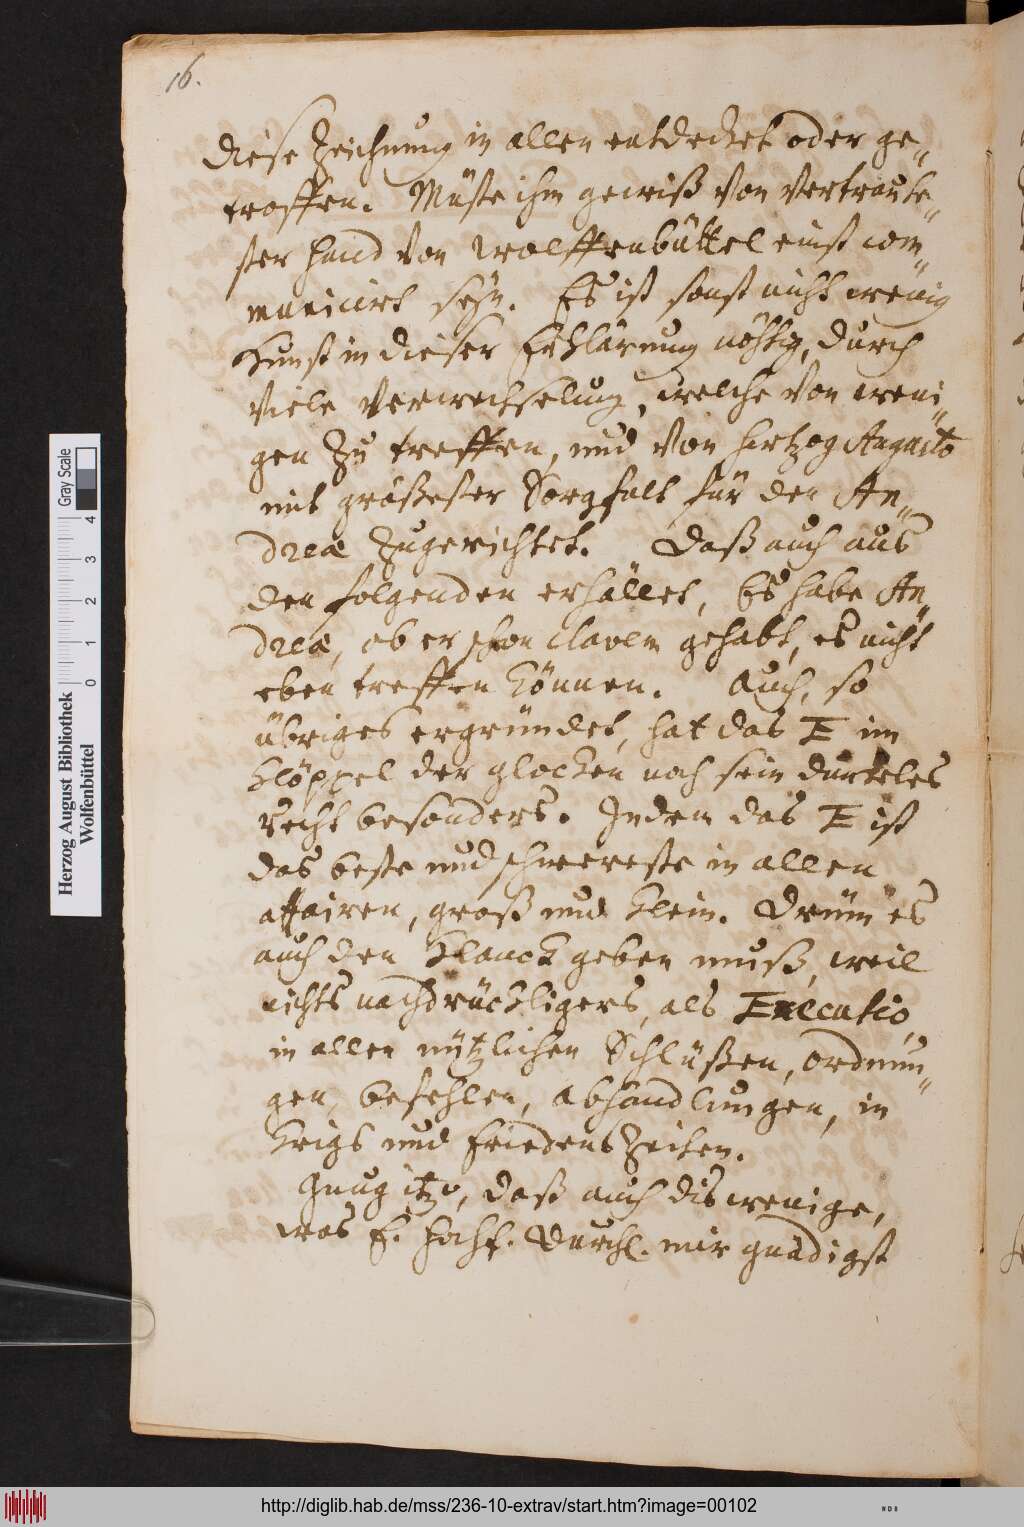 16.
diese Zeichnung in allen entdecket oder ge-
troffen. Müste ihm gewiß von vertraute-
ster Hand von Wolffenbüttel einst com-
municirt seyn. Es ist sonst nicht wenig
Kunst in dieser Erklärung nöhtig, durch
viele verwechselung, welche von weni-
gen Zu treffen, und von Hertzog Augusto
mit größester Sorgfalt für den An-
dreæ Zugerichtet. Daß auch aus
den folgenden erhället, Es habe An-
dreæ, ob er schon clavem gehabt, es nicht
eben treffen können. Auch, so
übriges ergründet, hat das E im
Klöppel der glocken noch sein dunckeles
recht besonders. Indem das E ist
das beste und schwereste in allen
affairen, groß und klein. Drüm es
auch den Klanck geben muß, weil
nichts nachdrückligers, als Executio,
in allen nützlichen Schlüßen, Ordnun-
gen, befehlen, abhandlungen, in
Krigs und Friedens Zeiten.
Gnug itzo, daß auch dis wenige,
was E. Hochf. Durchl. mir gnädigst
Herzog August Bibliothek
Wolfenbüttel
0 1 2 3 4
Gray Scale
http://diglib.hab.de/mss/236-10-extrav/start.htm?image=00102
WDB